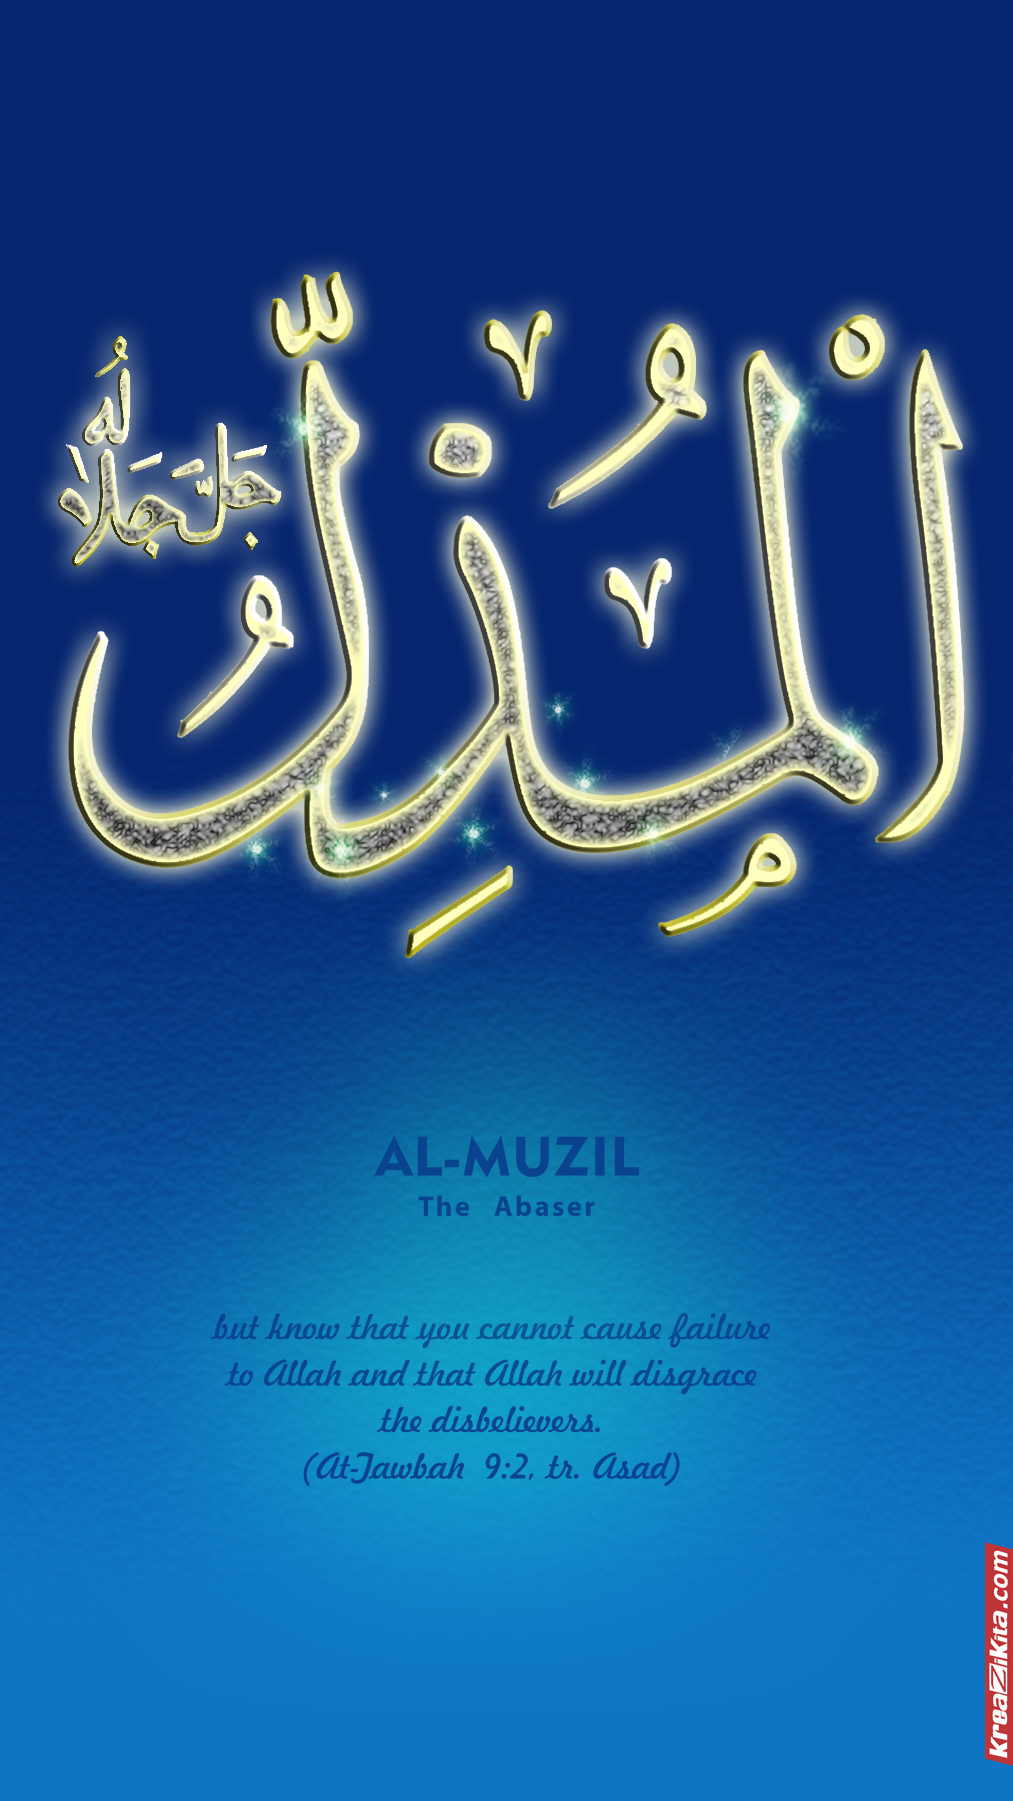 الْمُذِلُّ
جَلَّ جَلَالُهُ
AL-MUZIL
The Abaser
but know that you cannot cause failure
to Allah and that Allah will disgrace
the disbelievers.
(At-Tawbah 9:2, tr. Asad)
KreaZiKita.com